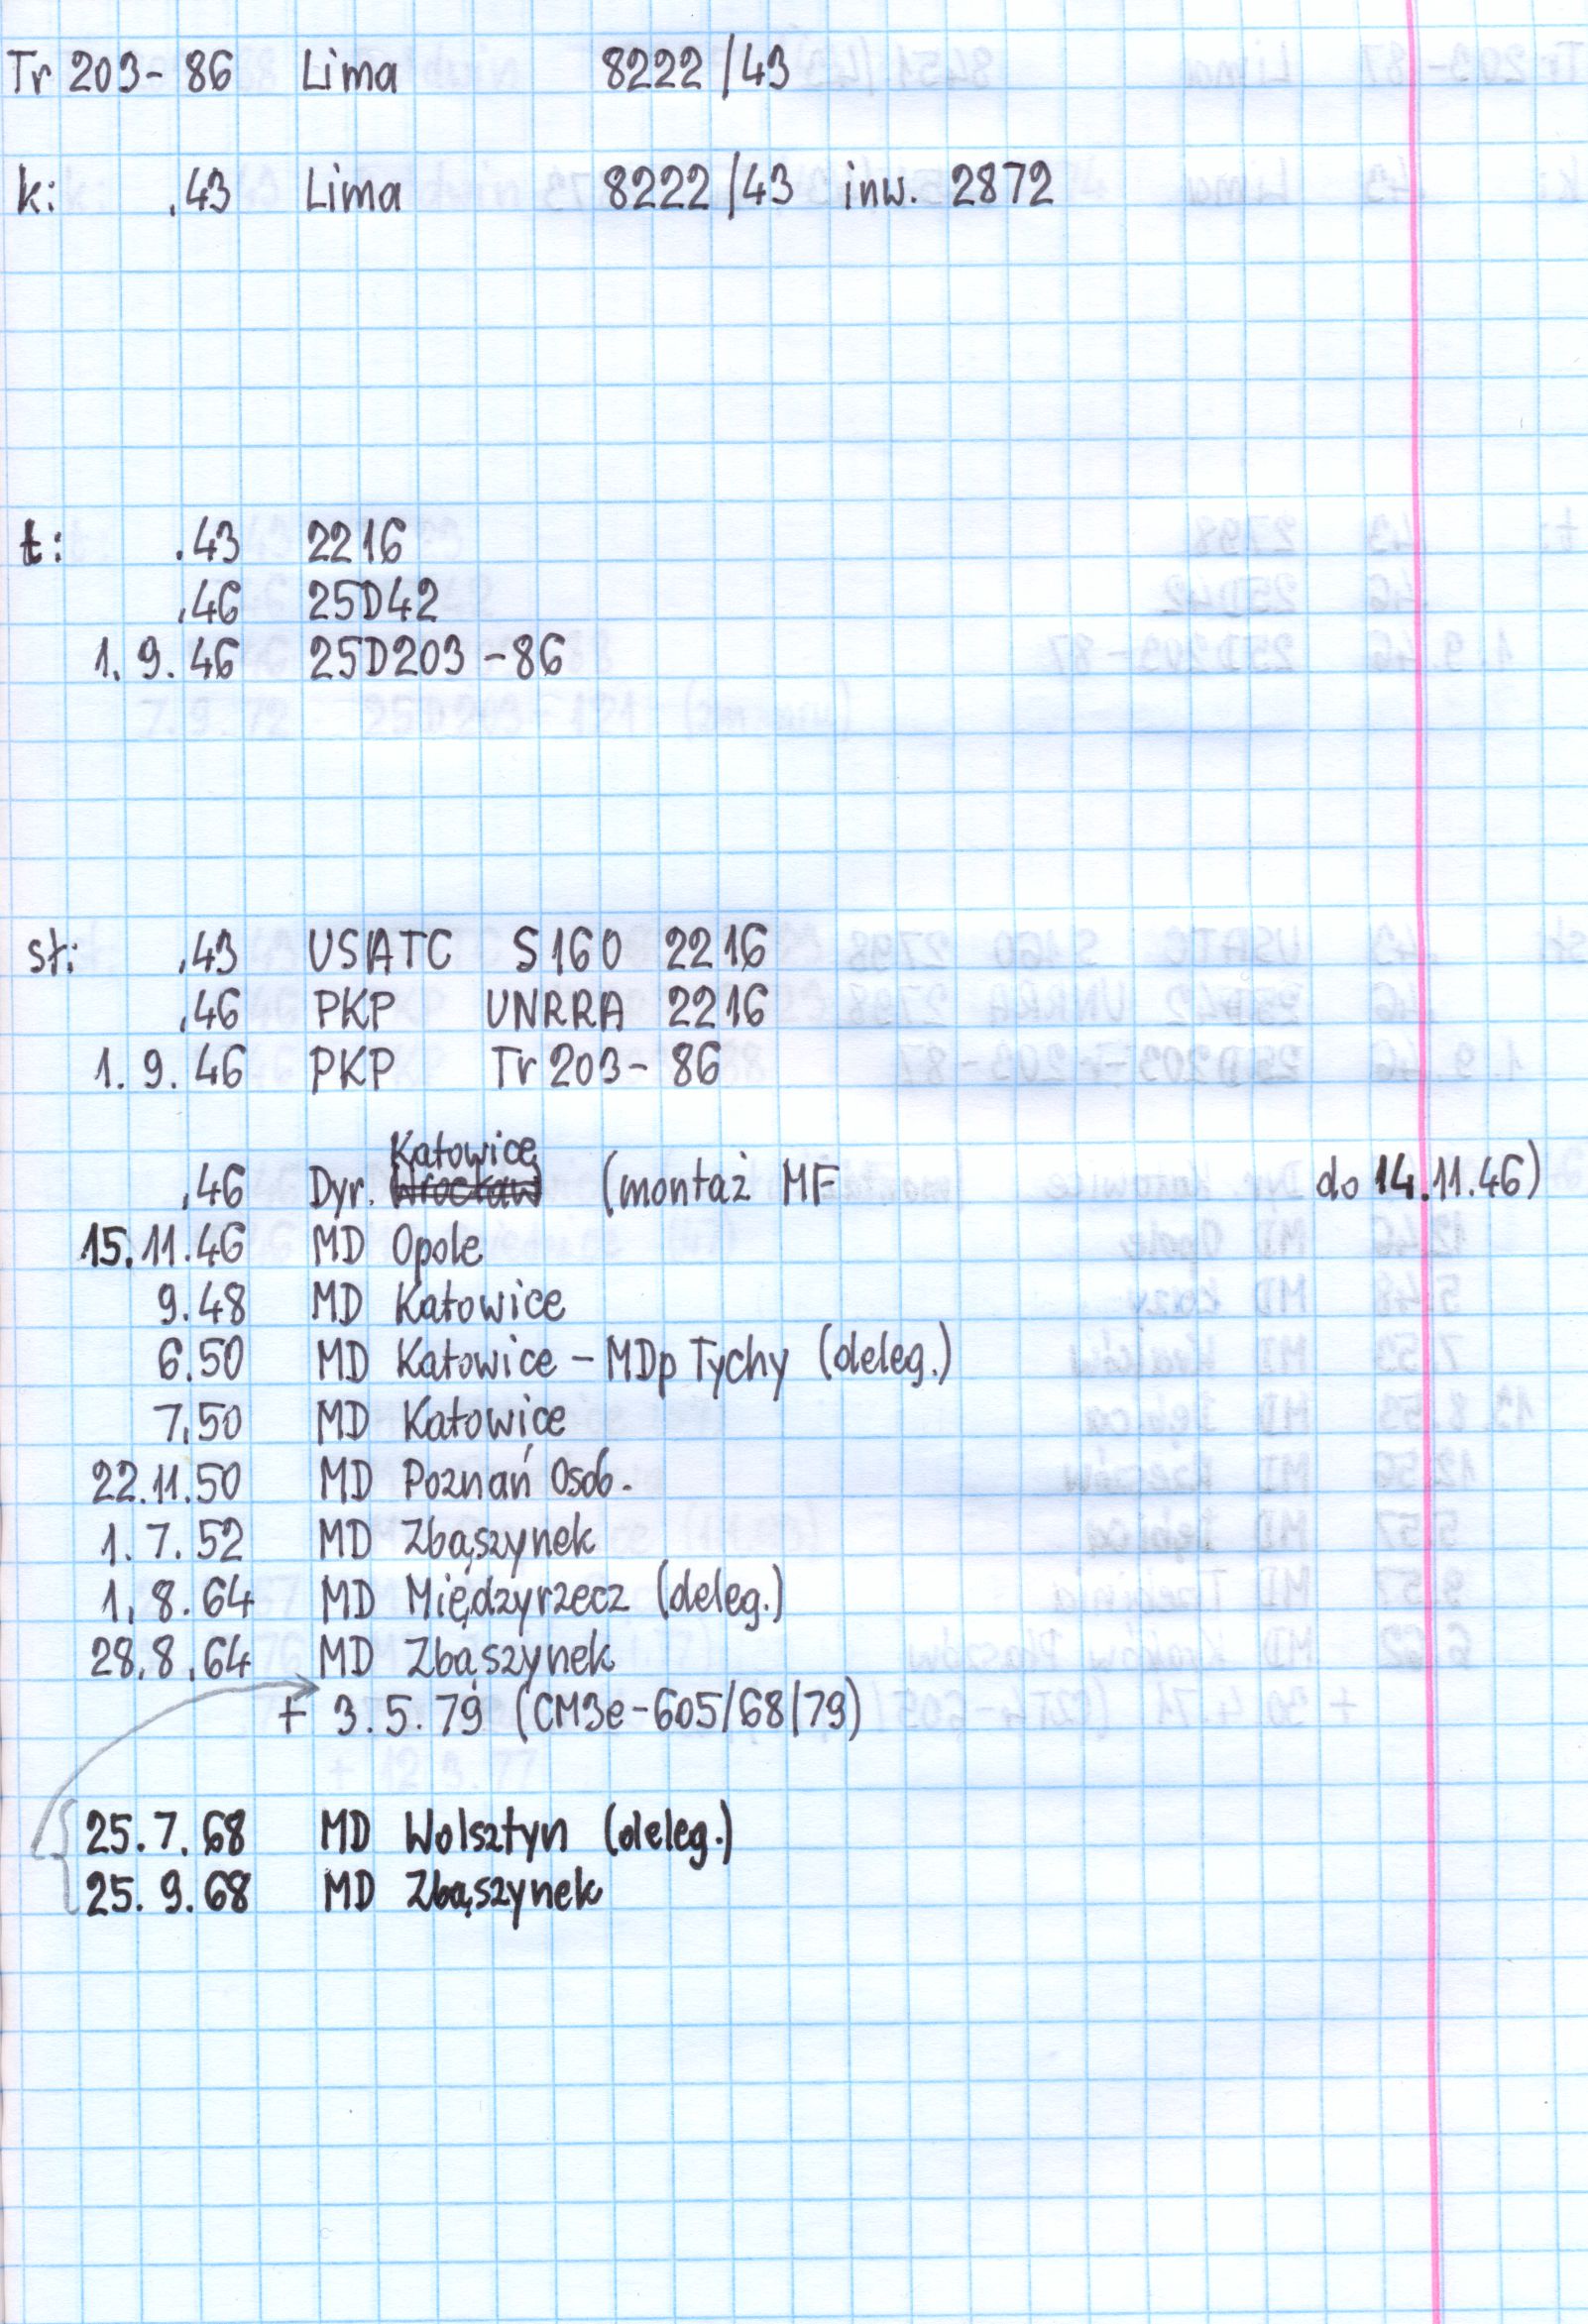 Tr 203-86 Lima 8222/43
k: .43 Lima 8222/43 inw. 2872
t: .43 2216
.46 25D42
1.9.46 25D203-86
st: .43 USATC S160 2216
.46 PKP UNRRA 2216
1.9.46 PKP Tr 203-86
Katowice
.46 Dyr. Wrocław (montaż MF do 14.11.46)
15.11.46 MD Opole
9.48 MD Katowice
6.50 MD Katowice - MDp Tychy (deleg.)
7.50 MD Katowice
22.11.50 MD Poznań Osob.
1.7.52 MD Zbąszynek
1.8.64 MD Międzyrzecz (deleg.)
28.8.64 MD Zbąszynek
+ 3.5.79 (CM3e-605/68/79)
25.7.68 MD Wolsztyn (deleg.)
25.9.68 MD Zbąszynek